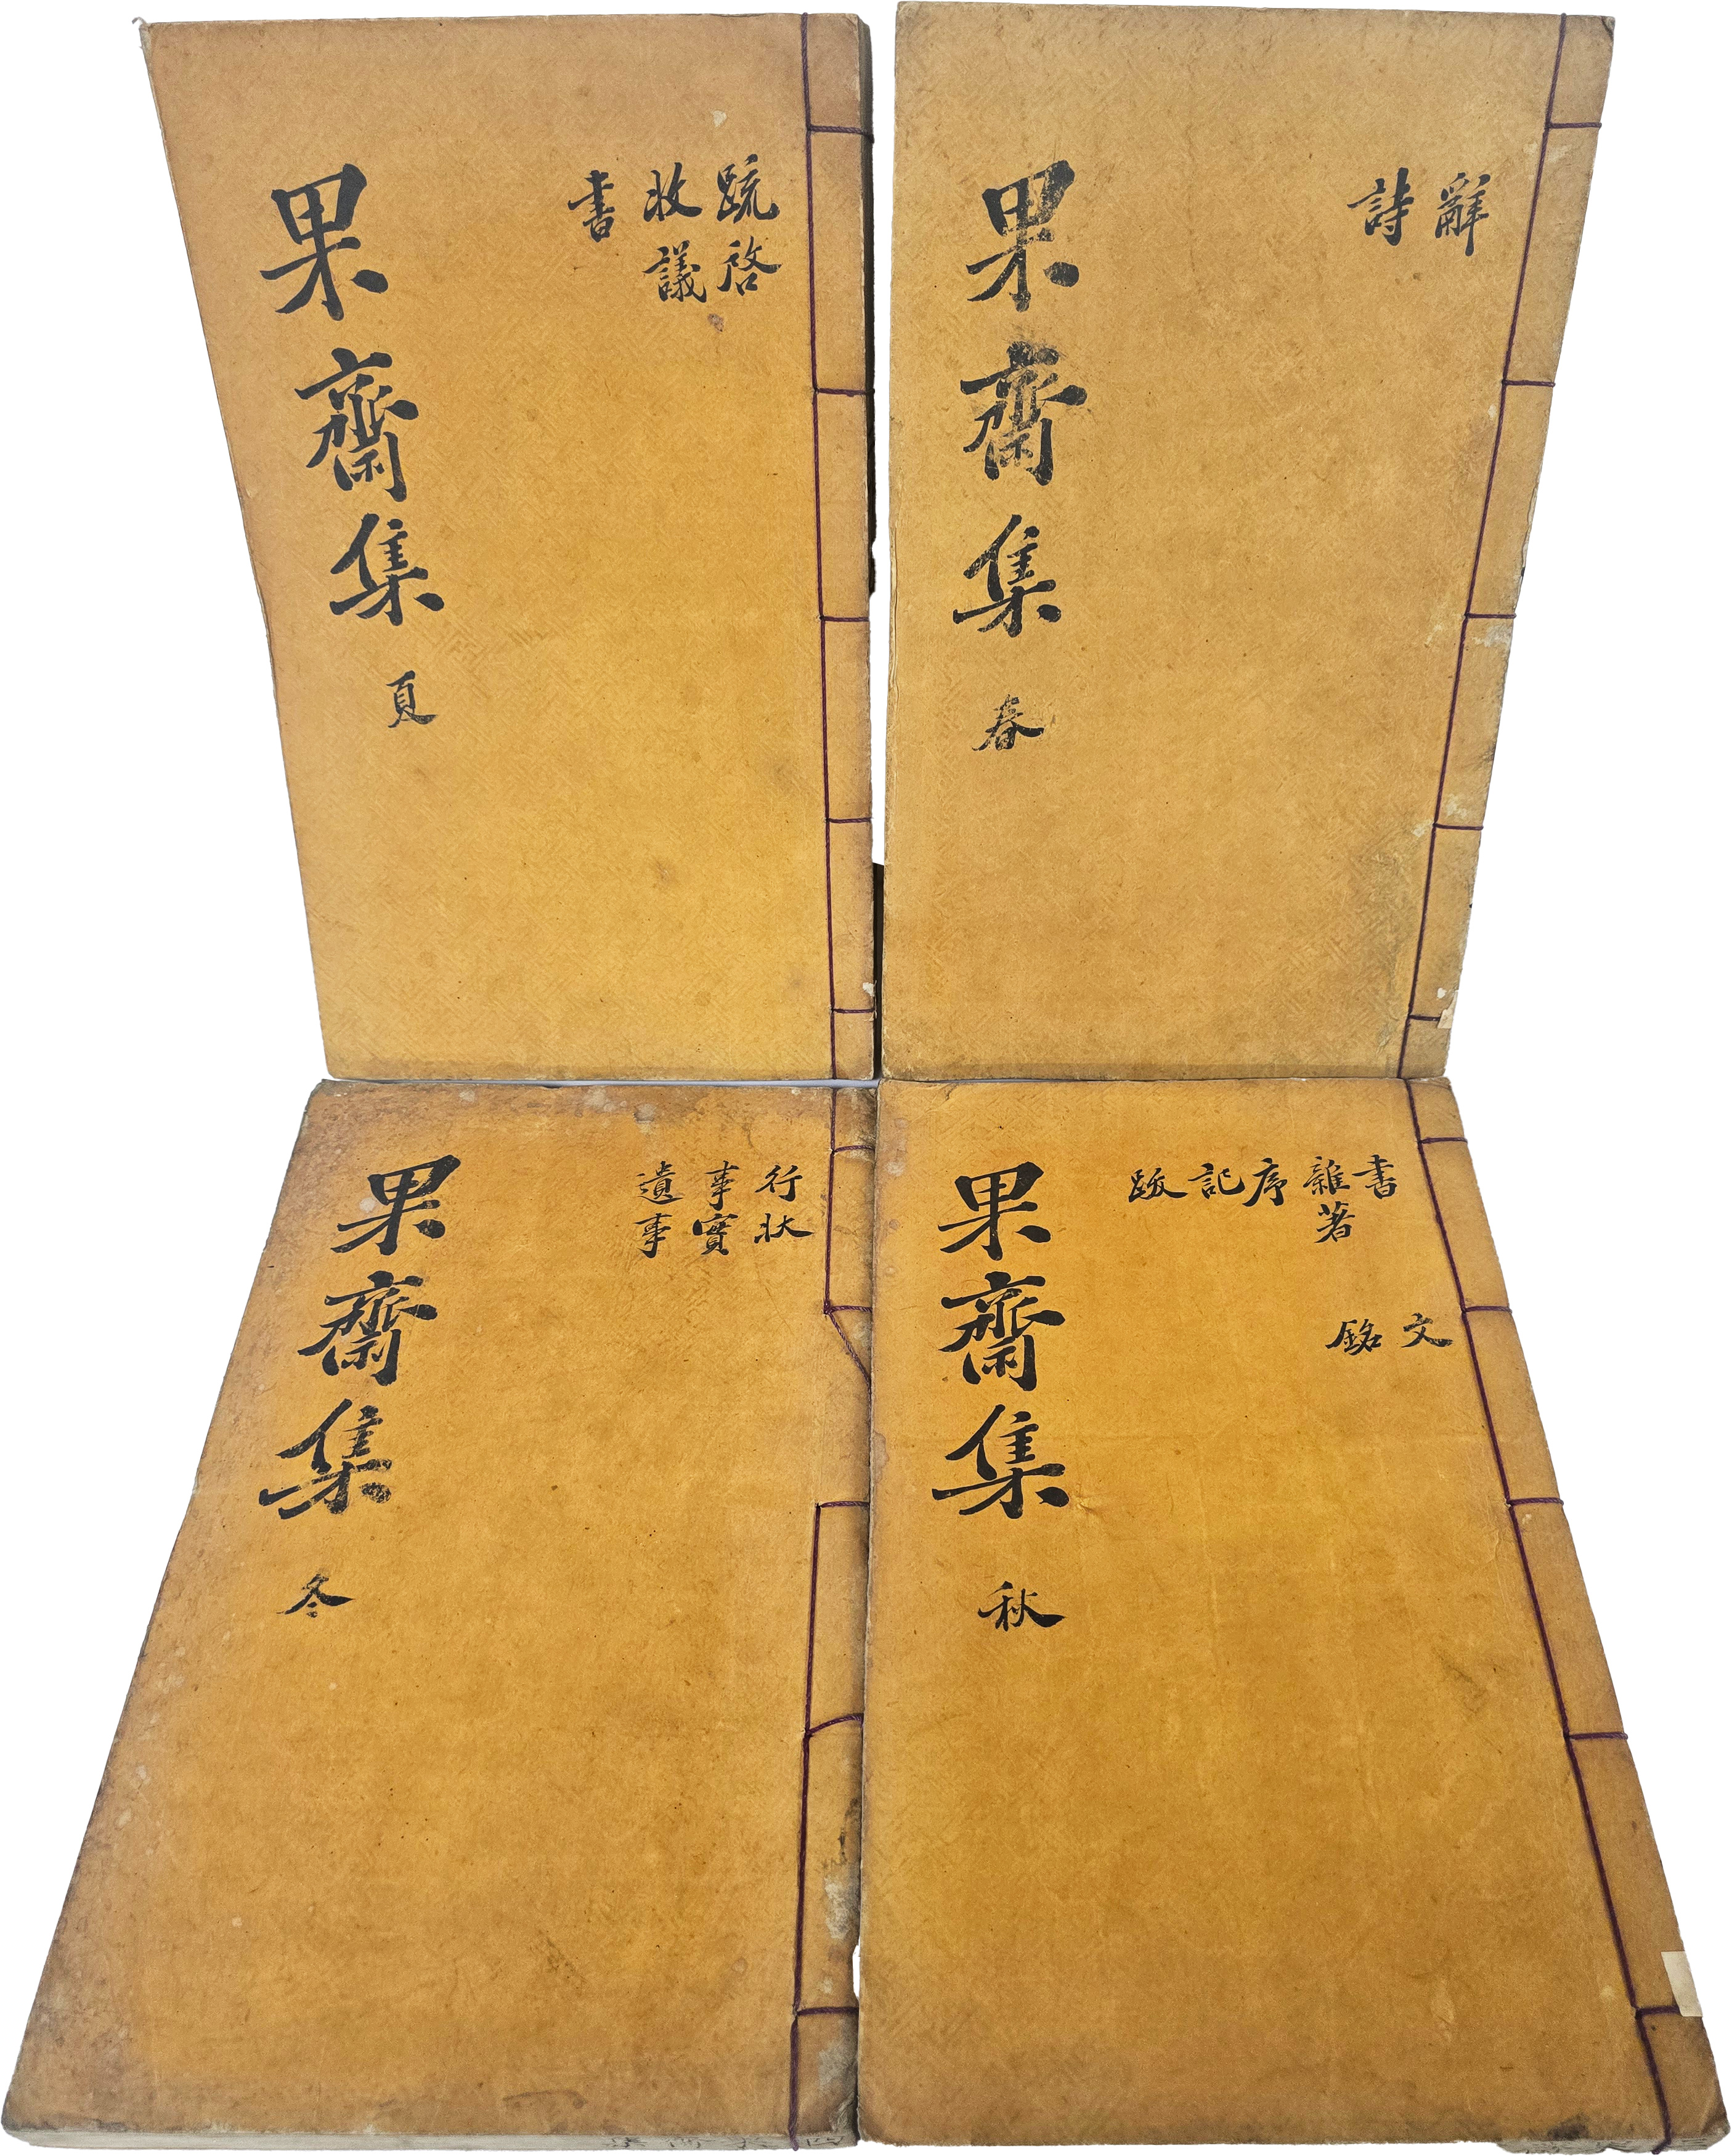 辭
詩
果齋集 春
䟽啓
收議
書
果齋集 夏
書
雜著
序
記
跋
文
銘
果齋集 秋
行狀
事實
遺事
果齋集 冬